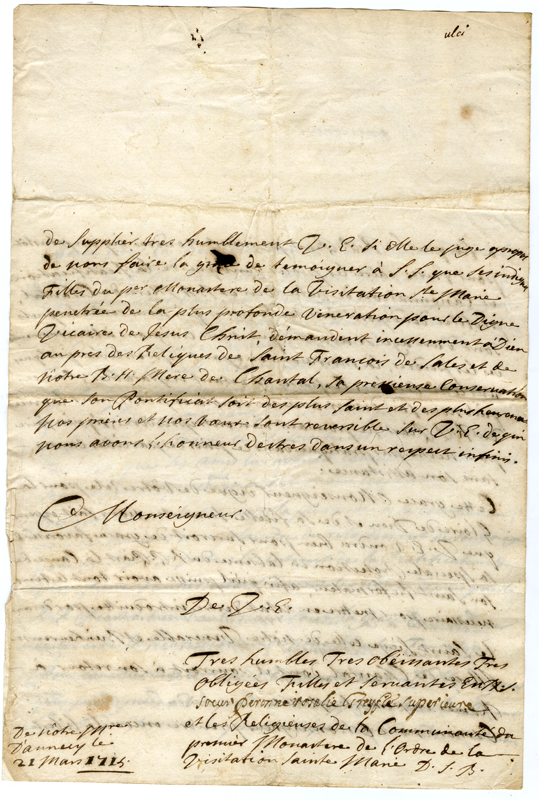 ulci
de Supplier tres humblement V. E. si Elle le juge apropos
de nous faire la grace de temoigner à S.S. que ses indignes
Filles du per Monastere de la Visitation Ste Marie
penetrée de la plus profonde veneration pour le Digne
Vicaire de Jesus Christ, demandent incessenment à Dieu
au pres des Reliques de Saint François de Sales et de
Notre B. H. Mere de Chantal, sa pressieuse Conservation
que son Pontificat soit des plus saint et des plus heureux
Nos prieres et nos vœux sont reversible sur V. E. de qui
nous avons l'honneur d'estres dans un respect infini.
Monseigneur
De V. E.
Tres humbles Tres obeissantes Tres
obligées Filles et servantes En N. S.
Sœur Peronne rosalie Superieure
et les Religieuses de la Communauté du
premier Monastere de l'Ordre de la
Visitation Sainte Marie D. S. B.
De notre Mre
D'annecy le
21 Mars